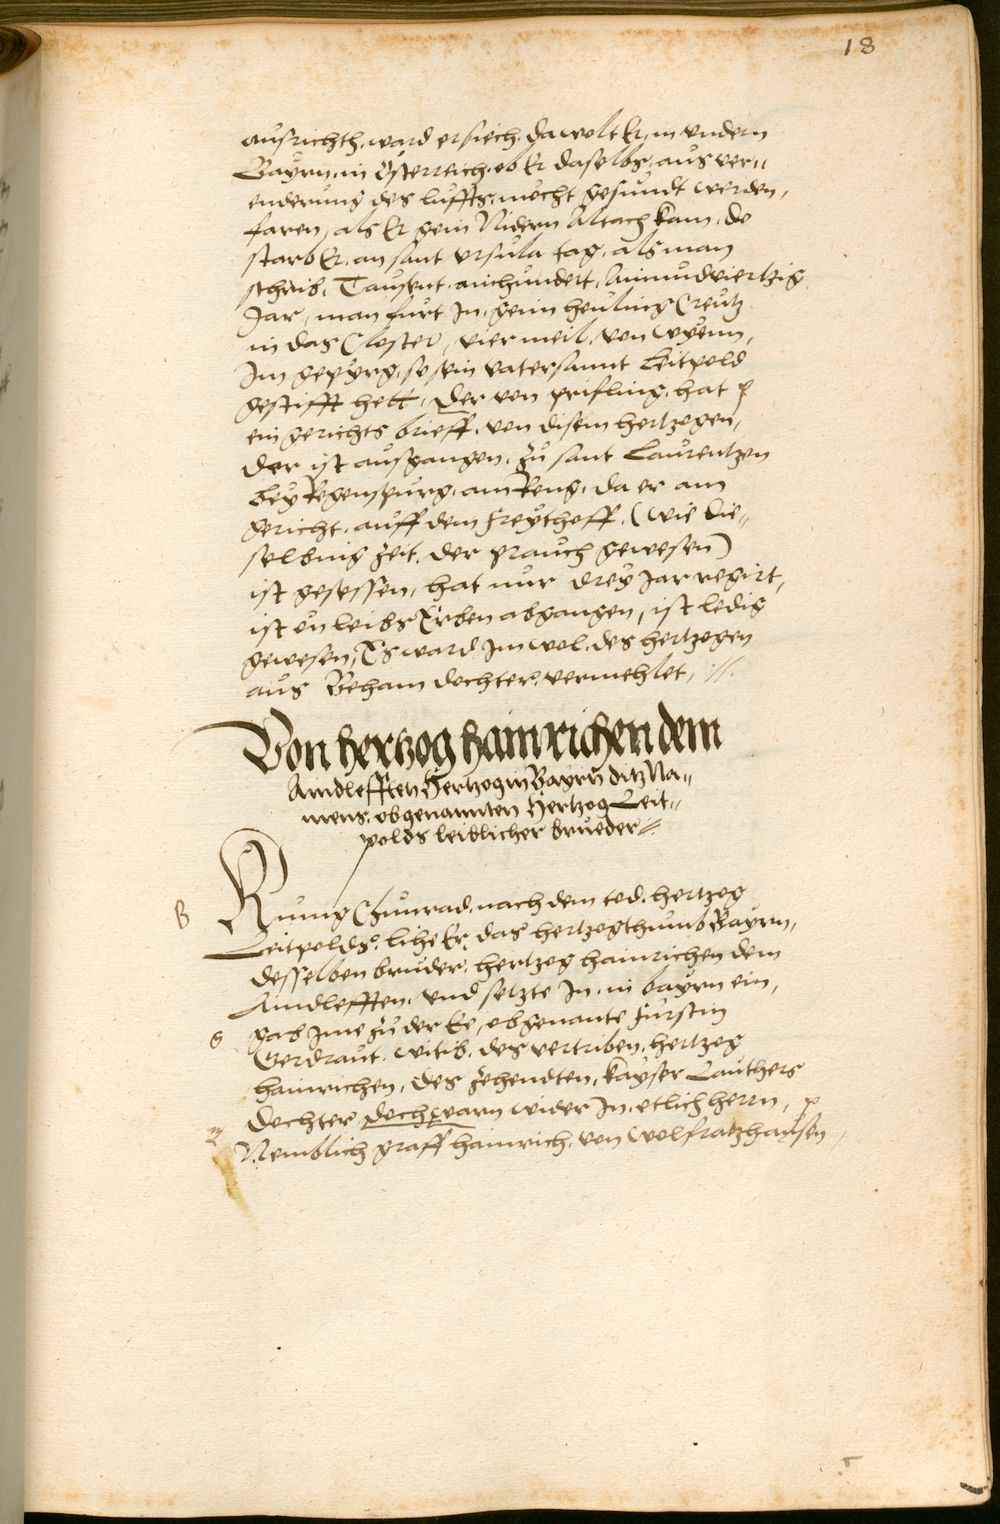 18
ausrichth, ward er siech, da wolt Er, in undern
Bayrn, in Österreich, ob Er daselbs, aus ver=
enderung des luffts, möcht gesundt werden,
faren, als Er gein Nidern Altach kam, do
starb Er, an sant Ursula tag, als man
schrib, Tausent, ainhundert, Ainundviertzig
Jar, man furt In, gein heyling Creutz
in das Closter, vier meil, von Wyenn,
Im gepyrg, so sein vater sannt Leitpold
gestifft hett, Der von prifling, hat
ein gerichts brieff, von disem hertzogen,
Der ist ausgangen, zu sant Laurentzen
bey Regenspurg, am Reng, da er am
gericht, auff dem Freythoff, (wie die=
selbing zeit, der prauch gewesen)
ist gesessen, hat nur drey Jar regirt,
ist on leibs Erben abgangen, ist ledig
gewesen, Es ward Im wol, des hertzogen
aus Beham dochter, vermehlet, //.
Von hertzog hainrichen dem
Aindlefften Hertzog in Bayrn ditz Na=
mens, obgenannten Hertzog Leit=
polds leiblicher brueder //.
B Kunig Chunrad, nach dem tod, hertzog
Leitpolds, lihe Er, das hertzogthumb Bayrn,
desselben bruder, hertzog hainrichen dem
Aindlefften, und setzte In, in bayrn ein,
gab Ime zu der Ee, obgenante Furstin
Gerdraut, witib, des vertriben, hertzog
hainrichen, des zehendten, kayser Lauthers
dochter, doch warn wider In, etlich herrn,
Nemblich graff hainrich, von Wolfratzhausen,